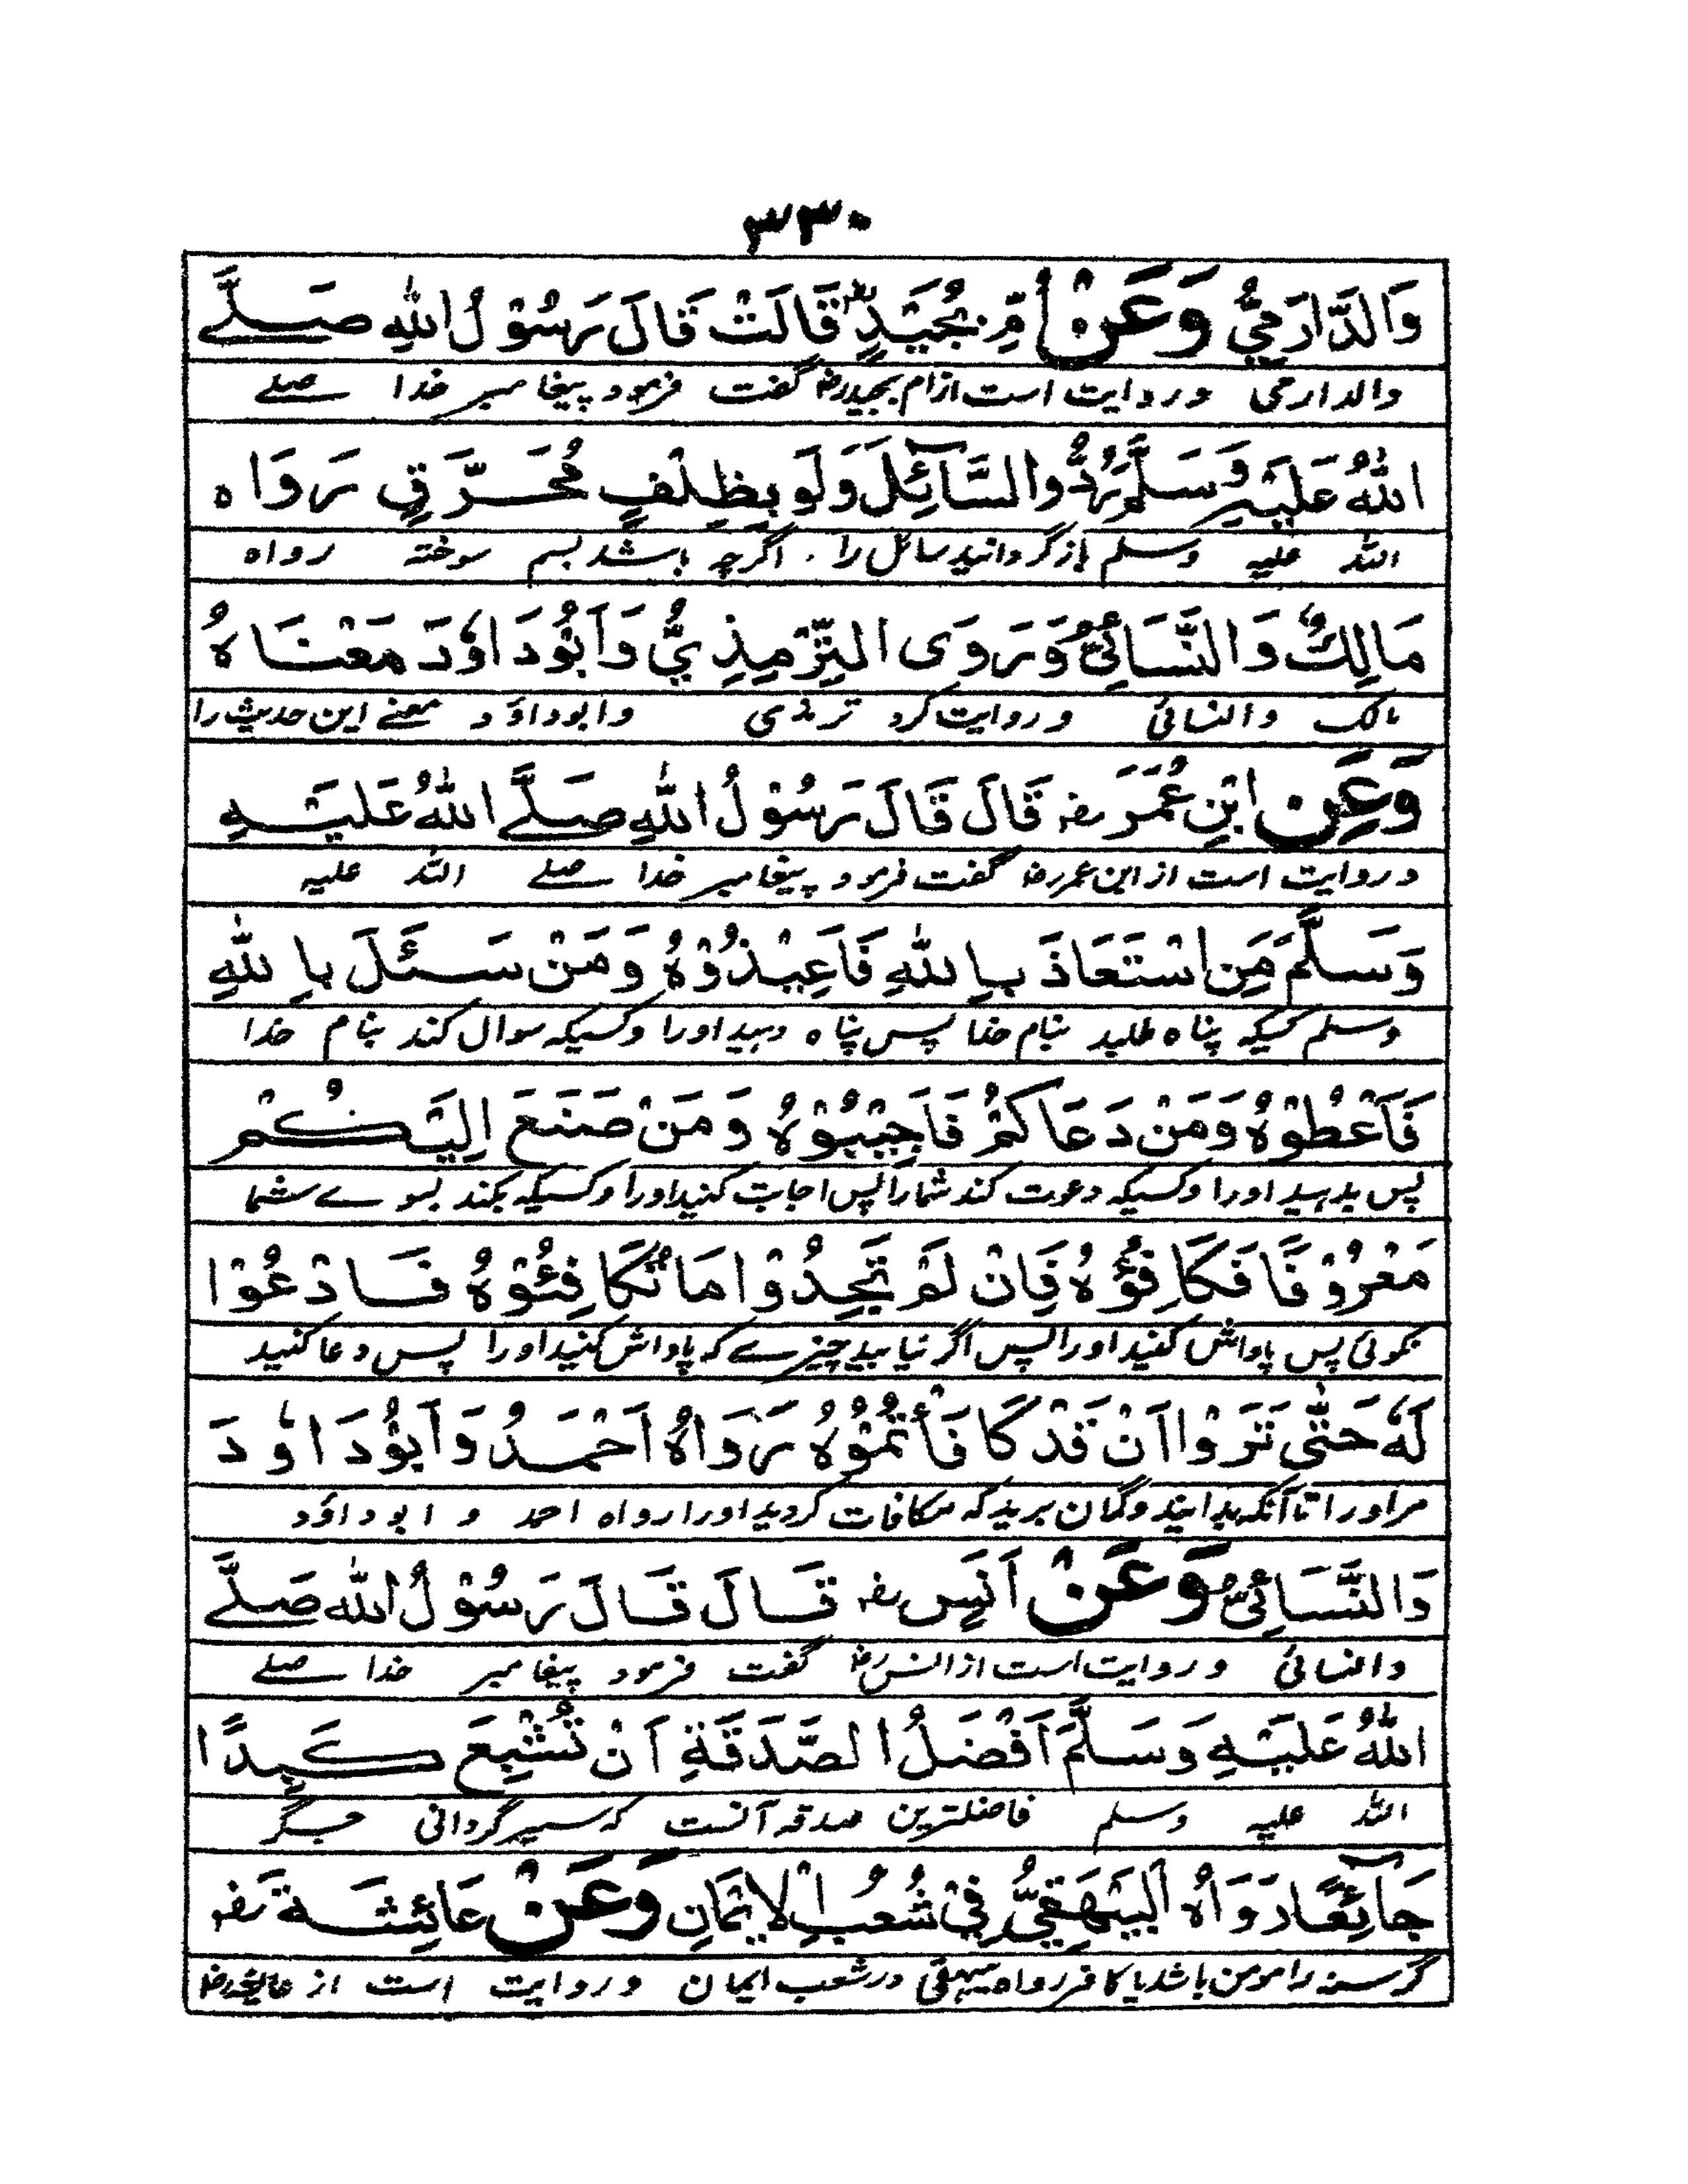 ۳۳۰
وَالدَّارَمِيُّ وَعَنْ اُمِّ بُجَيْدٍ رض قَالَتْ قَالَ رَسُوْلُ اللهِ صَلَّے
والدارمی وروایت است ازام بجیدرض گفت فرمود پیغامبر خدا صلے
اللهُ عَلَيْهِ وَسَلَّمَ رُدُّوا السَّآئِلَ وَلَو بِظِلْفٍ مُحَرَّقٍ رَوَاه
اللہ علیہ وسلم بازگردانید سائل را ۰ اگرچہ باشد بسم سوختہ رواہ
مَالِكٌ وَالنَّسَائِيُّ وَرَوَى التِّرْمِذِيُّ وَاَبُوْدَاوٗدَ مَعْنَاهُ
مالک والنسائی وروایت کرد ترمذی وابوداؤد معنے این حدیث را
وَعَنِ ابْنِ عُمَرَ رض قَالَ قَالَ رَسُوْلُ اللهِ صَلَّے اللهُ عَلَيْهِ
وروایت است ازابن عمررض گفت فرمود پیغامبر خدا صلے اللہ علیہ
وَسَلَّمَ مَنِ اسْتَعَاذَ بِاللهِ فَاَعِيْذُوْهُ وَمَنْ سَئَلَ بِاللهِ
وسلم کسیکہ پناہ طلبد بنام خدا پس پناہ دہید اورا وکسیکہ سوال کند بنام خدا
فَاَعْطُوْهُ وَمَنْ دَعَاكُمْ فَاَجِيْبُوْهُ وَمَنْ صَنَعَ اِلَيْكُمْ
پس بدہید اورا وکسیکہ دعوت کند شمارا پس اجابت کنید اورا وکسیکہ بکند بسوے شما
مَعْرُوْفًا فَكَافِؤُهُ فَاِنْ لَمْ تَجِدُوْا مَا تُكَافِئُوْهُ فَادْعُوْا
نکوئی پس پاداش کنید اورا پس اگر نیابید چیزے کہ پاداش کنید اورا پس دعا کنید
لَهٗ حَتّٰى تَرَوْا اَنْ قَدْ كَافَأْتُمُوْهُ رَوَاهُ اَحْمَدُ وَاَبُوْدَاوٗدَ
مراورا تا آنکہ بدانید وگمان بریدکہ مکافات کردید اورا رواہ احمد و ابوداؤد
وَالنَّسَائِيُّ وَعَنْ اَنَسٍ رض قَالَ قَالَ رَسُوْلُ اللهِ صَلَّے
والنسائی وروایت است از انس رض گفت فرمود پیغامبر خدا صلے
اللهُ عَلَيْهِ وَسَلَّمَ اَفْضَلُ الصَّدَقَةِ اَنْ تُشْبِعَ كَبِدًا
اللہ علیہ وسلم فاضلترین صدقہ آنست کہ سیر گردانی جگر
جَآئِعًا رَوَاهُ الْبَيْهَقِيُّ فِيْ شُعُبِ الْاِيْمَانِ وَعَنْ عَائِشَةَ رض
گرسنہ را مومن باشد یا کافر رواہ بیہقی درشعب ایمان وروایت است از عائشہ رض